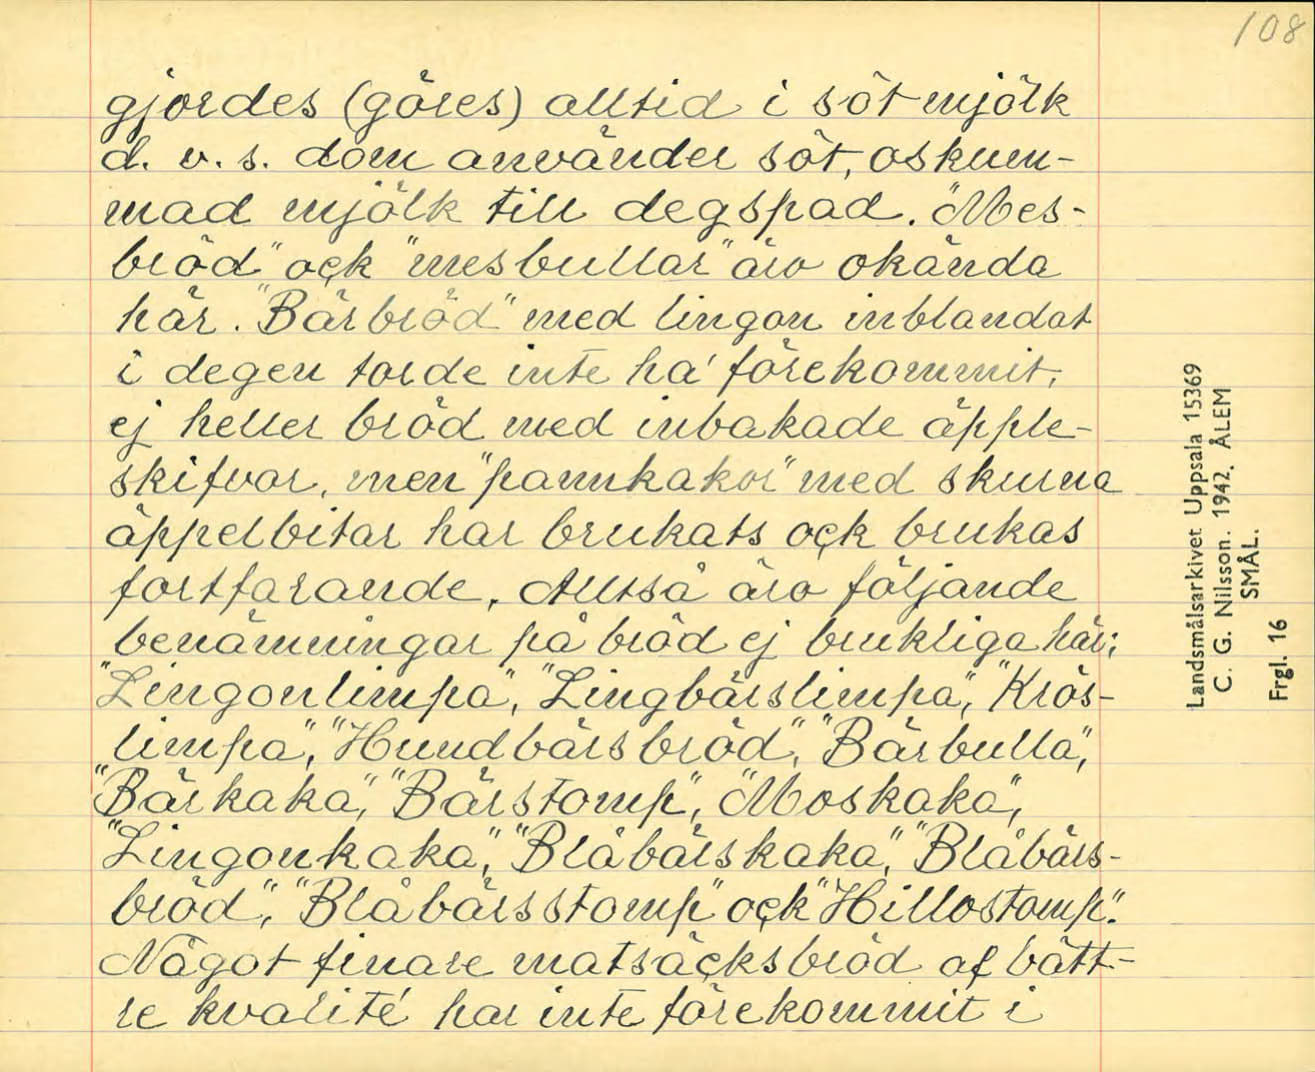 108
gjordes (göres) alltid i söt mjölk
d. v. s. dom använder söt, oskum-
mad mjölk till degspad. "Mes-
bröd" oçk "mesbullar" äro okända
här. "Bärbröd" med lingon inblandat
i degen torde inte ha' förekommit,
ej heller bröd med inbakade äpple-
skifvor, men "pannkakor" med skurna
äppelbitar har brukats oçk brukas
fortfarande. Alltså äro följande
benämningar på bröd ej brukliga här:
"Lingonlimpa", "Lingbärslimpa", "Krös-
limpa", "Hundbärsbröd", "Bärbulla",
"Bärkaka", "Bärstomp", "Moskaka",
"Lingonkaka", "Blåbärskaka", "Blåbärs-
bröd", "Blåbärsstomp" oçk "Hillostomp".
Något finare matsäçksbröd af bätt-
re kvalité har inte förekommit i
Landsmålsarkivet Uppsala 15369
C. G. Nilsson. 1942. ÅLEM
SMÅL.
Frgl. 16